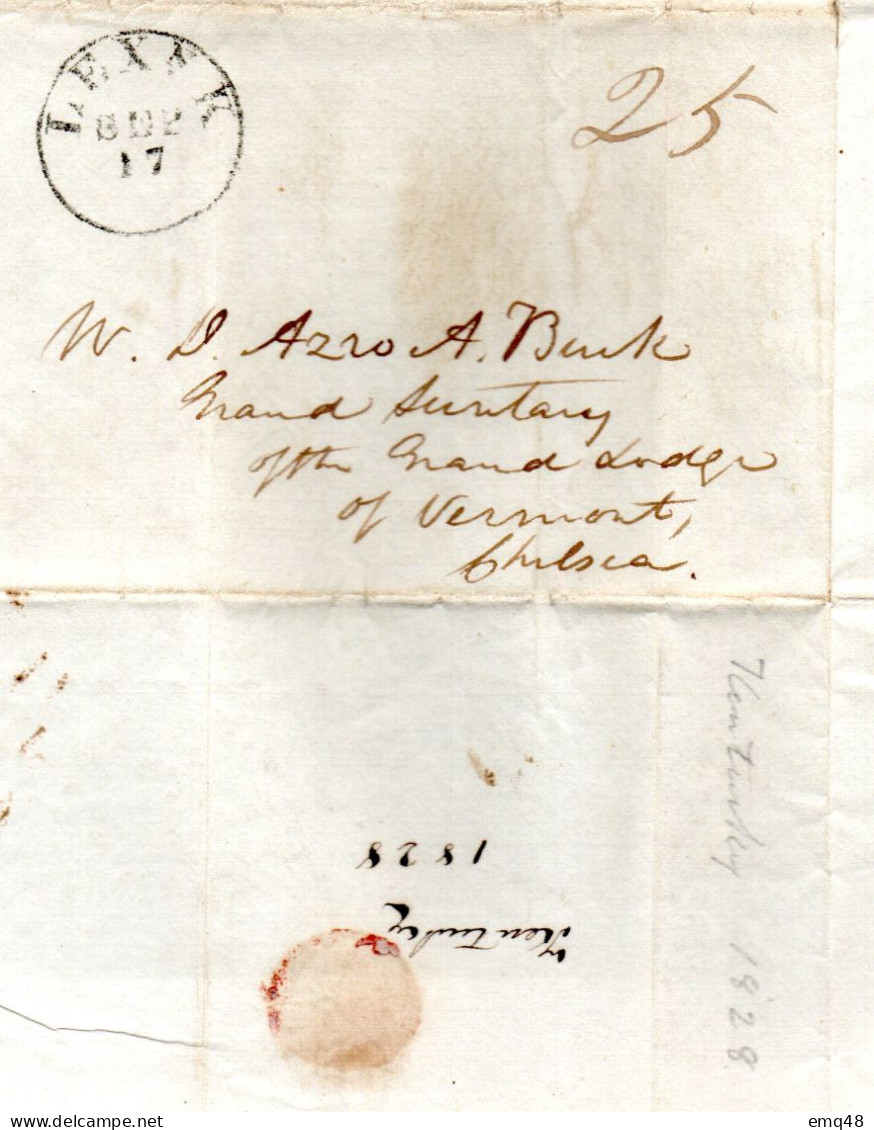 LEX. K
SEP
17
25
W. D. Azro A. Buck
Grand Secretary
of the Grand Lodge
of Vermont,
Chelsea.
Kentucky
1828
Kentucky 1828
delcampe.net
emq48